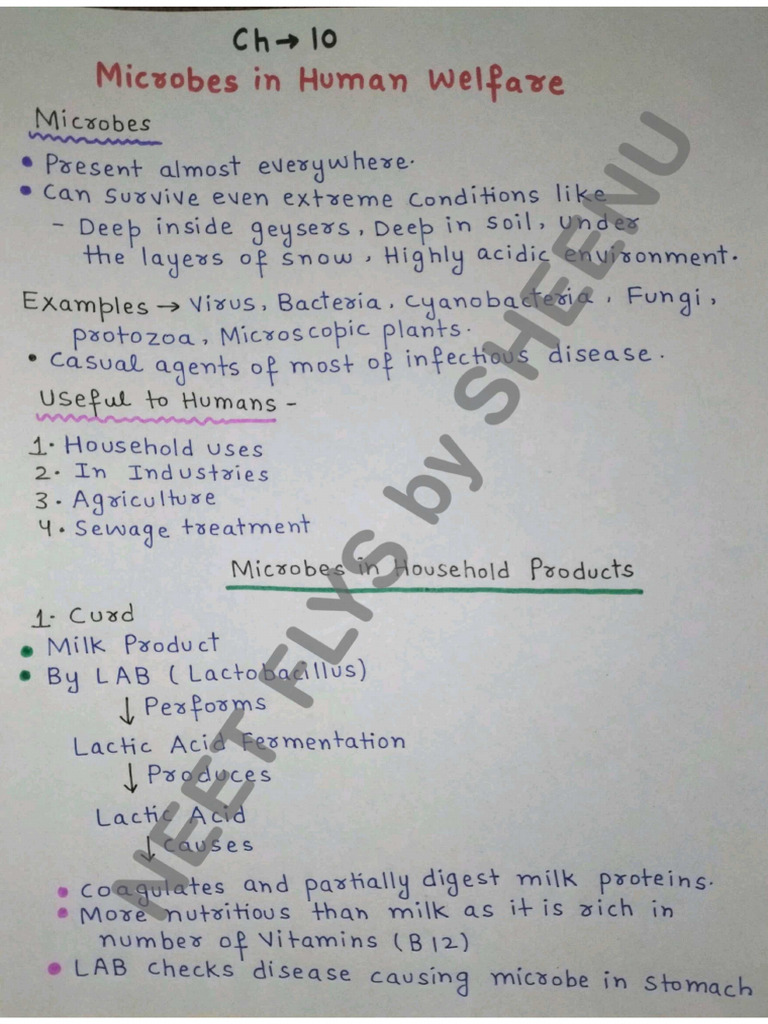 Ch→10
Microbes in Human Welfare
Microbes
• Present almost everywhere.
• Can survive even extreme conditions like
- Deep inside geysers, Deep in soil, under
the layers of snow, Highly acidic environment.
Examples → Virus, Bacteria, Cyanobacteria, Fungi,
protozoa, Microscopic plants.
• Casual agents of most of infectious disease.
Useful to Humans -
1. Household uses
2. In Industries
3. Agriculture
4. Sewage treatment
Microbes in Household Products
1. Curd
• Milk Product
• By LAB (Lactobacillus)
↓ Performs
Lactic Acid Fermentation
↓ Produces
Lactic Acid
↓ causes
• coagulates and partially digest milk proteins.
• More nutritious than milk as it is rich in
number of Vitamins (B12)
• LAB checks disease causing microbe in stomach
NEET FLYS by SHEENU